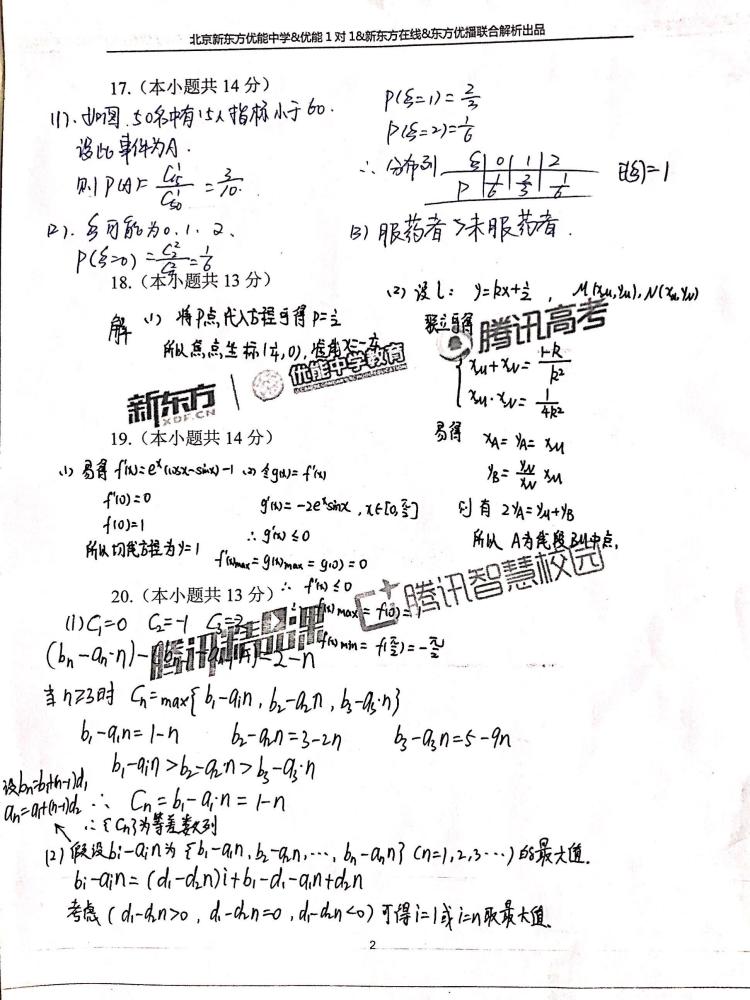 北京新东方优能中学&优能1对1&新东方在线&东方优播联合解析出品
17.（本小题共14分）
(1). 如图. 50名中有15人指标小于60.
设此事件为A.
则P(A)= C₁₅¹/C₅₀¹ = 3/10.
(2). ξ可能为0. 1. 2、
P(ξ=0)= C₂²/C₄² = 1/6
P(ξ=1)= 2/3
P(ξ=2)= 1/6
∴ 分布列 ξ 0 1 2
P 1/6 2/3 1/6
E(ξ)=1
(3) 服药者 > 未服药者.
18.（本小题共13分）
解 (1) 将P点代入方程可得 P=1/2
所以焦点坐标(1/4,0),
(2) 设l: y=kx+1/2, M(xM,yM), N(xN,yN)
联立可得
xM+xN= (1-k)/k²
xM·xN= 1/4k²
易得 xA=yA=xM
yB= yN/xN xM
则有 2yA=yM+yB
所以 A为线段BM中点,
新东方
XDF.CN
优能中学教育
腾讯高考
19.（本小题共14分）
(1) 易得 f'(x)=eˣ(cosx-sinx)-1
f'(0)=0
f(0)=1
所以切线方程为y=1
(2) 令g(x)=f'(x)
g'(x)=-2eˣsinx, x∈[0,π/2]
∴ g'(x)≤0
f'(x)max=g(x)max=g(0)=0
∴ f'(x)≤0
f(x)max=f(0)=1
f(x)min=f(π/2)=-π/2
腾讯智慧校园
腾讯精品课
20.（本小题共13分）
(1) C₁=0 C₂=-1
当n≥3时 Cₙ=max{b₁-a₁n, b₂-a₂n, b₃-a₃·n}
b₁-a₁n=1-n b₂-a₂n=3-2n b₃-a₃n=5-9n
b₁-a₁n>b₂-a₂n>b₃-a₃·n
∴ Cₙ=b₁-a₁·n=1-n
∴{Cₙ}为等差数列
设bₙ=b₁+(n-1)d₁
aₙ=a₁+(n-1)d₂
(2) 假设bᵢ-aᵢn为{b₁-a₁n, b₂-a₂n, ···, bₙ-aₙn} (n=1,2,3···)的最大值.
bᵢ-aᵢn=(d₁-d₂n)i+b₁-d₁-a₁n+d₂n
考虑(d₁-d₂n>0, d₁-d₂n=0, d₁-d₂n<0)可得i=1或i=n取最大值.
2